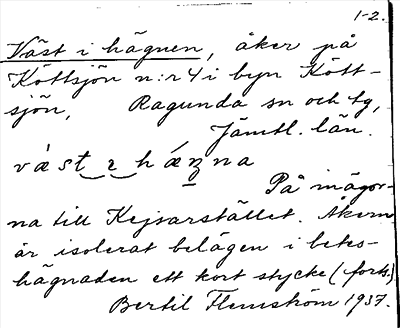 1-2.
Väst i hägnen, åker på
Köttsjön n:r 4 i byn Kött-
sjön, Ragunda sn och tg,
Jämtl. län.
vást ɪ háŋna
På mägor-
na till Kejsarstället. Åkern
är isolerat belägen i betes-
hägnaden ett kort stycke (forts.)
Bertil Flemström 1937.